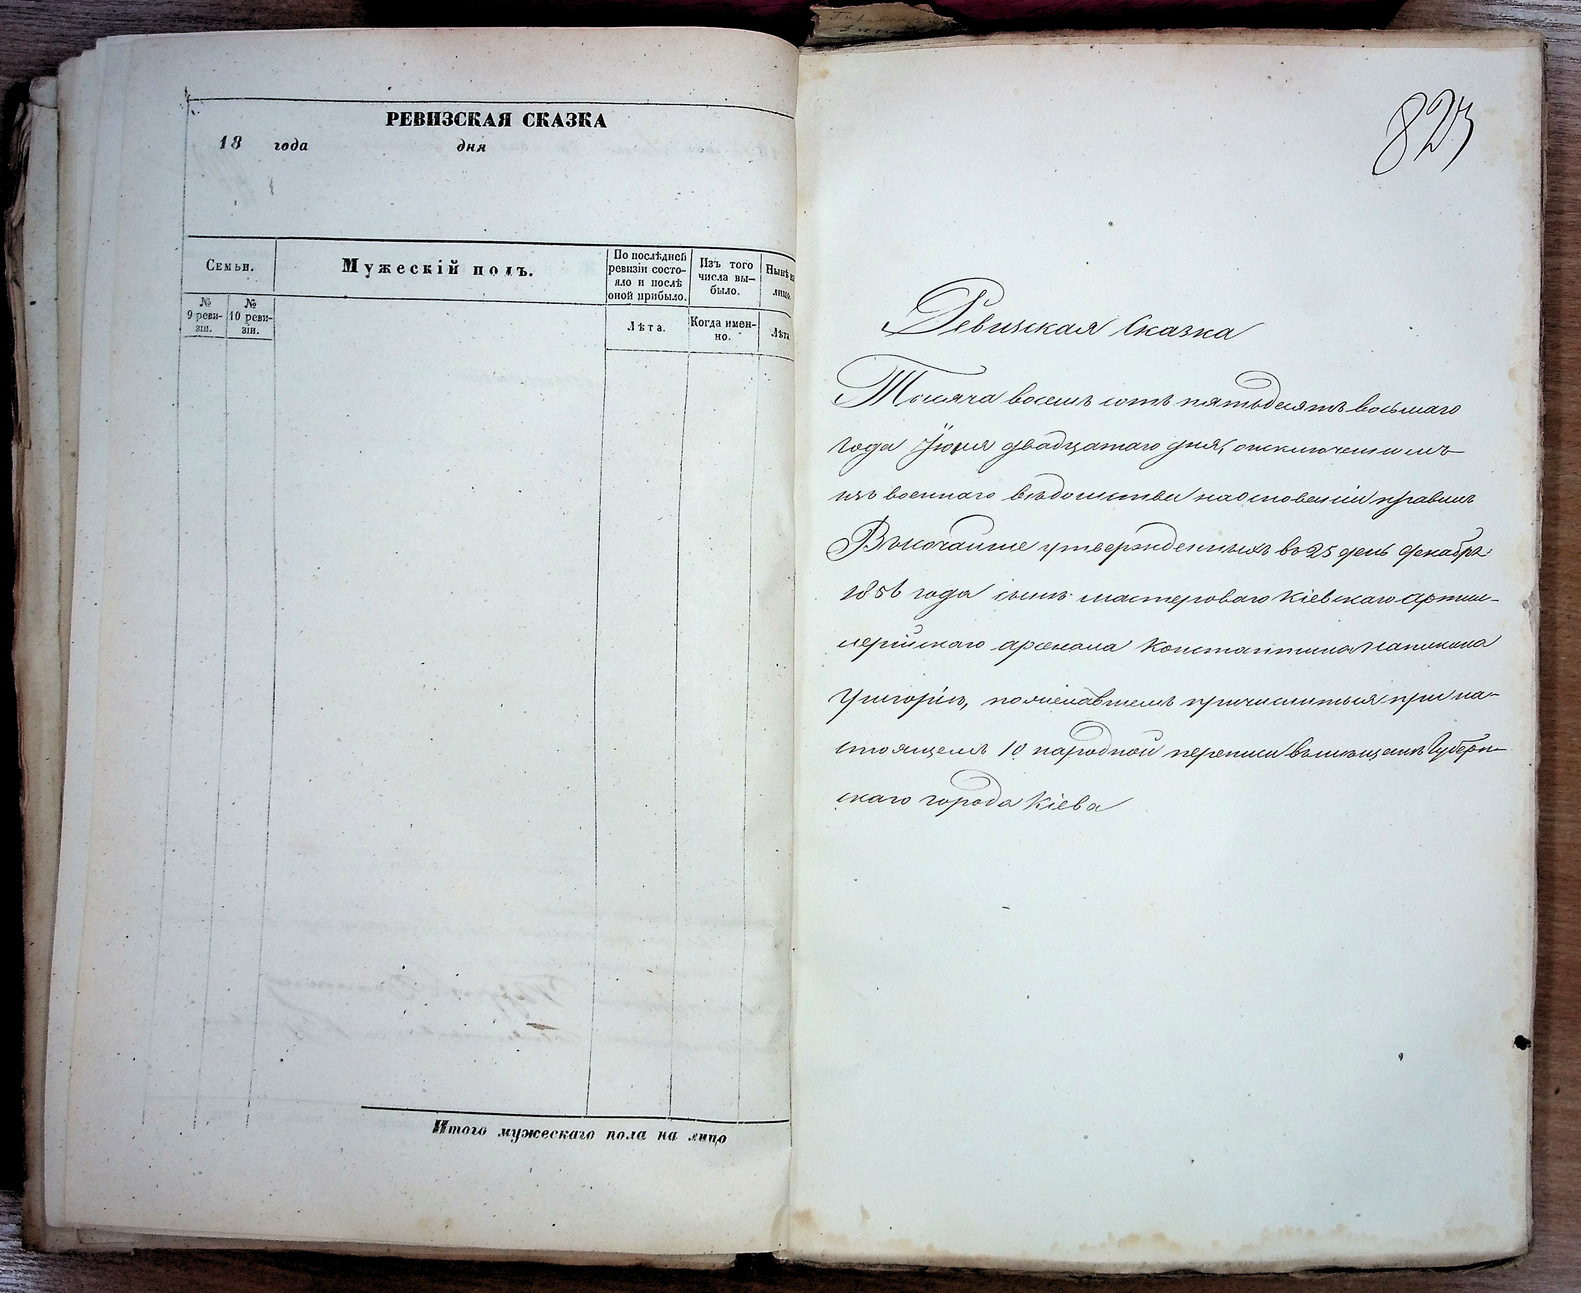 РЕВИЗСКАЯ СКАЗКА
18 года дня
Семьи.
Мужескій полъ.
По послѣдней ревизіи состо-
яло и послѣ оной прибыло.
Изъ того числа вы-
было.
Нынѣ
№ 9 реви-
зіи.
№ 10 реви-
зіи.
Лѣта.
Когда имен-
но.
Лѣта
Итого мужескаго пола на лицо
823
Ревизская Сказка
Тысяча восемь сотъ пятьдесятъ восьмаго
года Іюня двадцатаго дня, о исключенномъ
изъ военнаго вѣдомства на основаніи правилъ
Высочайше утвержденныхъ въ 25 день декабря
1856 года сынѣ мастероваго Кіевскаго артил-
лерійскаго арсенала Константина
Григоріѣ, пожелавшемъ причислиться при на-
стоящемъ 10 народной переписи въ мѣщане Губерн-
скаго города Кіева